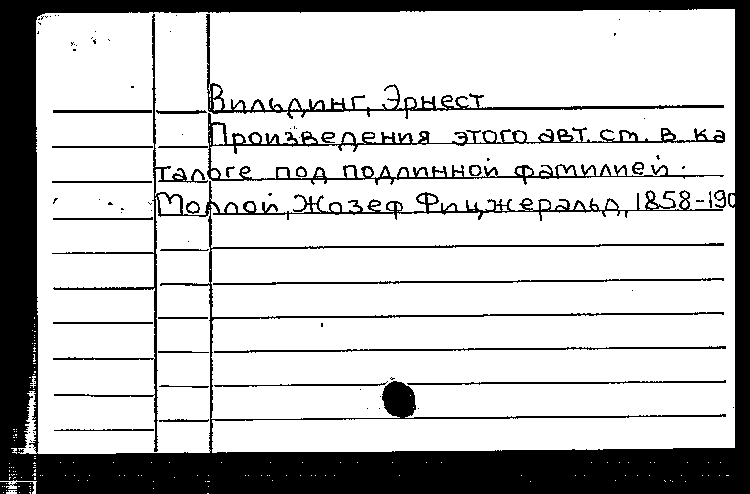 Вильдинг, Эрнест
Произведения этого авт. см. в ка
талоге под подлинной фамилией:
Моллой, Жозеф Фицжеральд, 1858-190